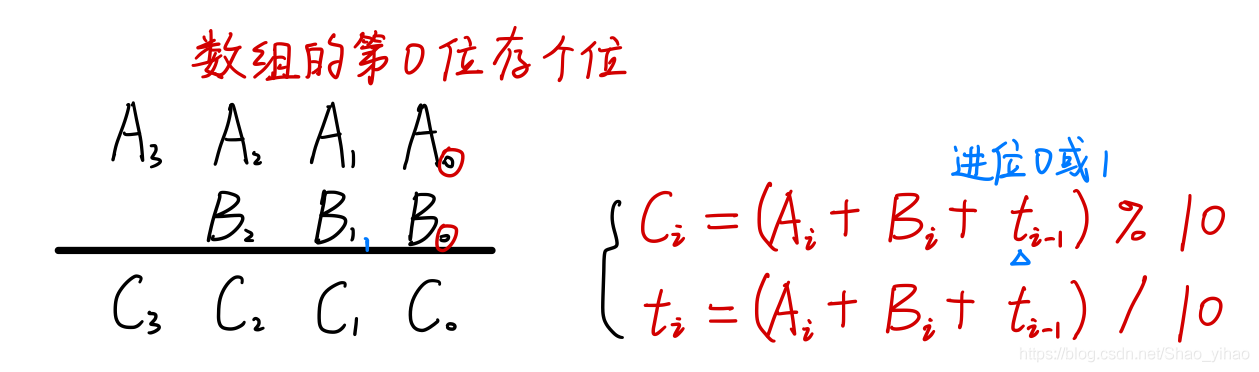 数组的第0位存个位
A₃ A₂ A₁ A₀
B₂ B₁ B₀
1
C₃ C₂ C₁ C₀
进位0或1
Cᵢ = (Aᵢ + Bᵢ + tᵢ₋₁) % 10
tᵢ = (Aᵢ + Bᵢ + tᵢ₋₁) / 10
https://blog.csdn.net/Shao_yihao